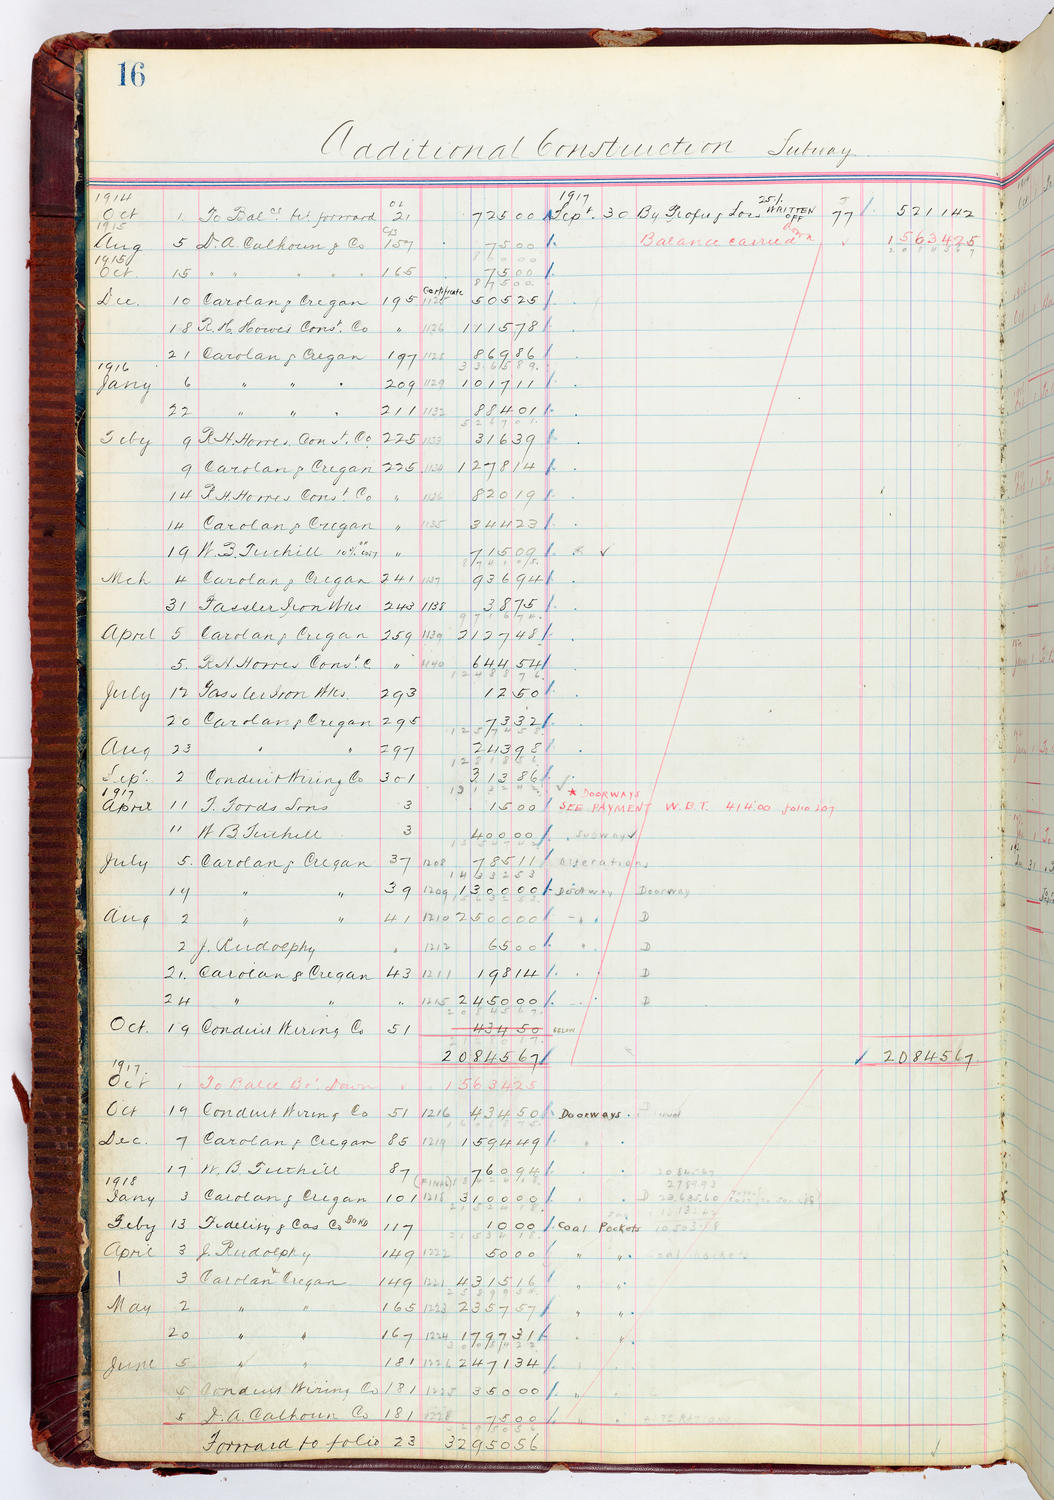 16
Additional Construction Subway
1914 1917
Oct 1. To Bal ce bt forward OL 21 72500 Sept. 30 By Profit & Loss 25% WRITTEN OFF 77 521142
1915
Aug 5 D. A. Calhoun & Co 157 7500 Balance carried down 1563425
86000 2084567
1915
Oct. 15 " " " " 165 7500
87500
Dec. 10 Carolan & Cregan 195 Certificate 1125 50525
18 R. H. Howes Const. Co " 1126 111578
21 Carolan & Cregan 197 1128 86986
336589
1916
Jany 6 " " " 209 1129 101711
22 " " " 211 1132 88401
526701
Feby 9 R H Howes Const. Co. 225 1133 31639
9 Carolan & Cregan 225 1134 127814
14 R. H. Howes Const Co " 1136 82019
14 Carolan & Cregan " 1135 34423
19 W. B. Tuthill 10% " 71509 * ✓
874105
Mch 4 Carolan & Cregan 241 1137 93694
31 Fassler Iron Wks 243 1138 3875
971674
April 5 Carolan & Cregan 259 1139 212748
5. R H Howes Const. C " 1140 64454
1248876
July 12 Fassler Iron Wks. 293 1250
20 Carolan & Cregan 295 7332
1257458
Aug 23 " " 297 24398
1281856
Sept. 2 Conduit Wiring Co 301 31386 ✓
1313242 * DOORWAYS
1917
April 11 T. Fords Sons 3 1500 SEE PAYMENT W.B.T. 414.00 folio 207
11 W B Tuthill 3 40000 Subway ✓
1354742
July 5. Carolan & Cregan 37 1208 78511 Alterations
1433253
19 " " 39 1209 130000 Doorway Doorway
1563253
Aug 2 " " 41 1210 250000 " " D
2 J. Rudolphy " 1212 6500 " D
21. Carolan & Cregan 43 1211 19814 " " D
24 " " " 1215 245000 " D
2084567
Oct. 19 Conduit Wiring Co 51 43450 BELOW
2084567 ✓ 2084567
1917
Oct 1 To Balce Bt. Down 1563425
Oct 19 Conduit Wiring Co 51 1216 43450 Doorways
1606875
Dec. 7 Carolan & Cregan 85 1219 159449 " "
17 W. B. Tuthill 87 76094 " " 2084567
(FINAL) 1842418
1918
Jany 3 Carolan & Cregan 101 1218 310000 " " D
2152418
Feby 13 Fidelity & Cas Co BOND 117 1000 Coal Pockets
2153418
April 3 J. Rudolphy 149 1222 5000 " " Coal Pockets
3 Carolan & Cregan 149 1221 431516 " "
2589934
May 2 " " 165 1223 235757 " "
20 " " 167 1224 179731 "
3005422
June 5 " " 181 1226 247134
5 Conduit Wiring Co 181 1225 35000 "
5 D. A. Calhoun Co 181 1228 7500 " " ALTERATIONS
3295056
Forward to folio 23 3295056 ✓